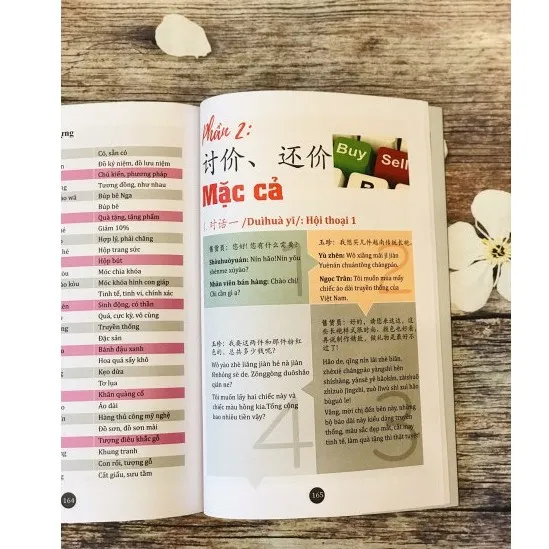 ựng
Có, sẵn có
Đồ kỷ niệm, đồ lưu niệm
Chủ kiến, phương pháp
Tương đồng, như nhau
Búp bê Nga
Búp bê
Quà tặng, tặng phẩm
Giảm 10%
Hợp lý, phải chăng
Hộp trang sức
Hộp bút
Móc chìa khóa
Móc khóa hình con giáp
Tinh tế, tinh vi, chính xác
Sinh động, có thần
Quá, cực kỳ, vô cùng
Truyền thống
Đặc sản
Bánh đậu xanh
Hoa quả sấy khô
Kẹo dừa
Tơ lụa
Khăn quàng cổ
Áo dài
Hàng thủ công mỹ nghệ
Đồ sơn, đồ sơn mài
Tượng điêu khắc gỗ
Khung tranh
Con rối, tượng gỗ
Cất giấu, sưu tầm
164
Phần 2:
讨价、还价
Mặc cả
Buy
Sell
1. 对话一 /Duìhuà yī/: Hội thoại 1
售货员: 您好! 您有什么需要?
Shòuhuòyuán: Nín hǎo!Nín yǒu
shénme xūyào?
Nhân viên bán hàng: Chào chị!
Chị cần gì ạ?
1
玉珍: 我想买几件越南传统长袍。
Yù zhēn: Wǒ xiǎng mǎi jǐ jiàn
Yuènán chuántǒng chángpáo.
Ngọc Trân: Tôi muốn mua mấy
chiếc áo dài truyền thống của
Việt Nam.
2
玉珍: 我要这两件和那件粉红
色的。总共多少钱呢?
Wǒ yào zhè liǎng jiàn hé nà jiàn
fěnhóng sè de. Zǒnggòng duōshǎo
qián ne?
Tôi muốn lấy hai chiếc này và
chiếc màu hồng kia.Tổng cộng
bao nhiêu tiền vậy?
4
售货员: 好的,请您来这边,这
些长袍样式很时尚,颜色也好看
再说制作精致,做礼物是最好不
过了!
Hǎo de, qǐng nín lái zhè biān,
zhèxiē chángpáo yàngshì hěn
shíshàng, yánsè yě hǎokàn, zàishuō
zhìzuò jīngzhì, zuò lǐwù shì zuì hǎo
bùguò le!
Vâng, mời chị đến bên này, những
bộ áo dài này kiểu dáng truyền
thống, màu sắc đẹp mắt, cắt may
tinh tế, làm quà tặng thì thật tuyệt!
3
165